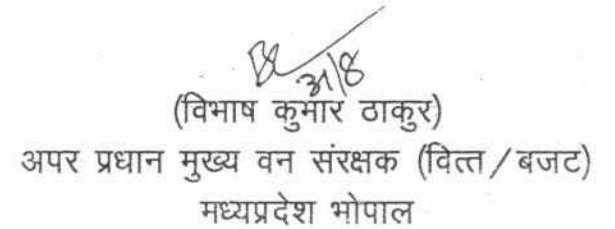 31/8
(विभाष कुमार ठाकुर)
अपर प्रधान मुख्य वन संरक्षक (वित्त/बजट)
मध्यप्रदेश भोपाल